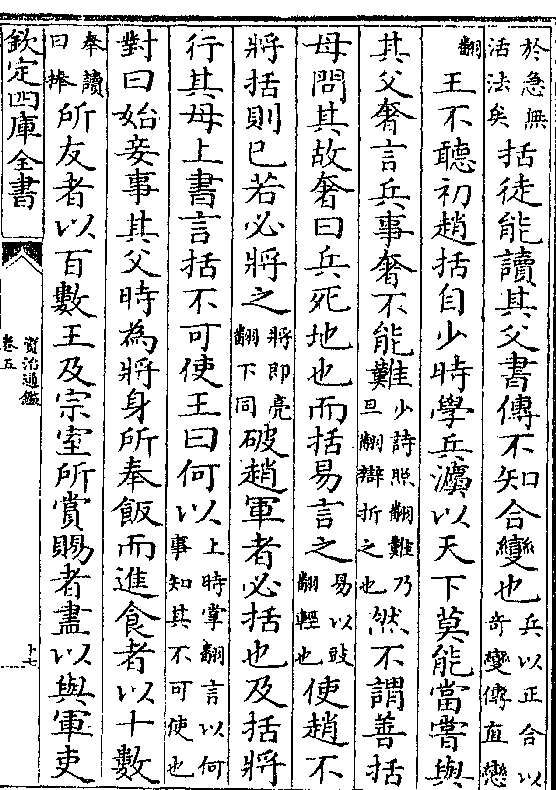 於急無活法矣括徒能讀其父書傳不知合變也兵以正合以奇變傳直戀
翻王不聽初趙括自少時學兵灋以天下莫能當嘗與
其父奢言兵事奢不能難少詩照翻難乃旦翻辯折之也然不謂善括
母問其故奢曰兵死地也而括易言之易以豉翻輕也使趙不
將括則已若必將之將即亮翻下同破趙軍者必括也及括將
行其母上書言括不可使王曰何以上時掌翻言以何事知其不可使也
對曰始妾事其父時為將身所奉飯而進食者以十數
奉讀曰捧所友者以百數王及宗室所賞賜者盡以與軍吏
欽定四庫全書
資治通鑑
卷五
十七